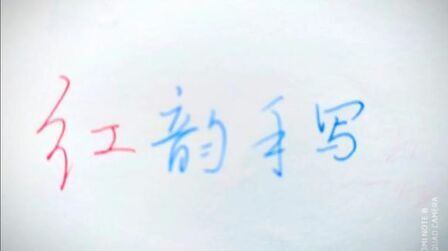 红韵手写